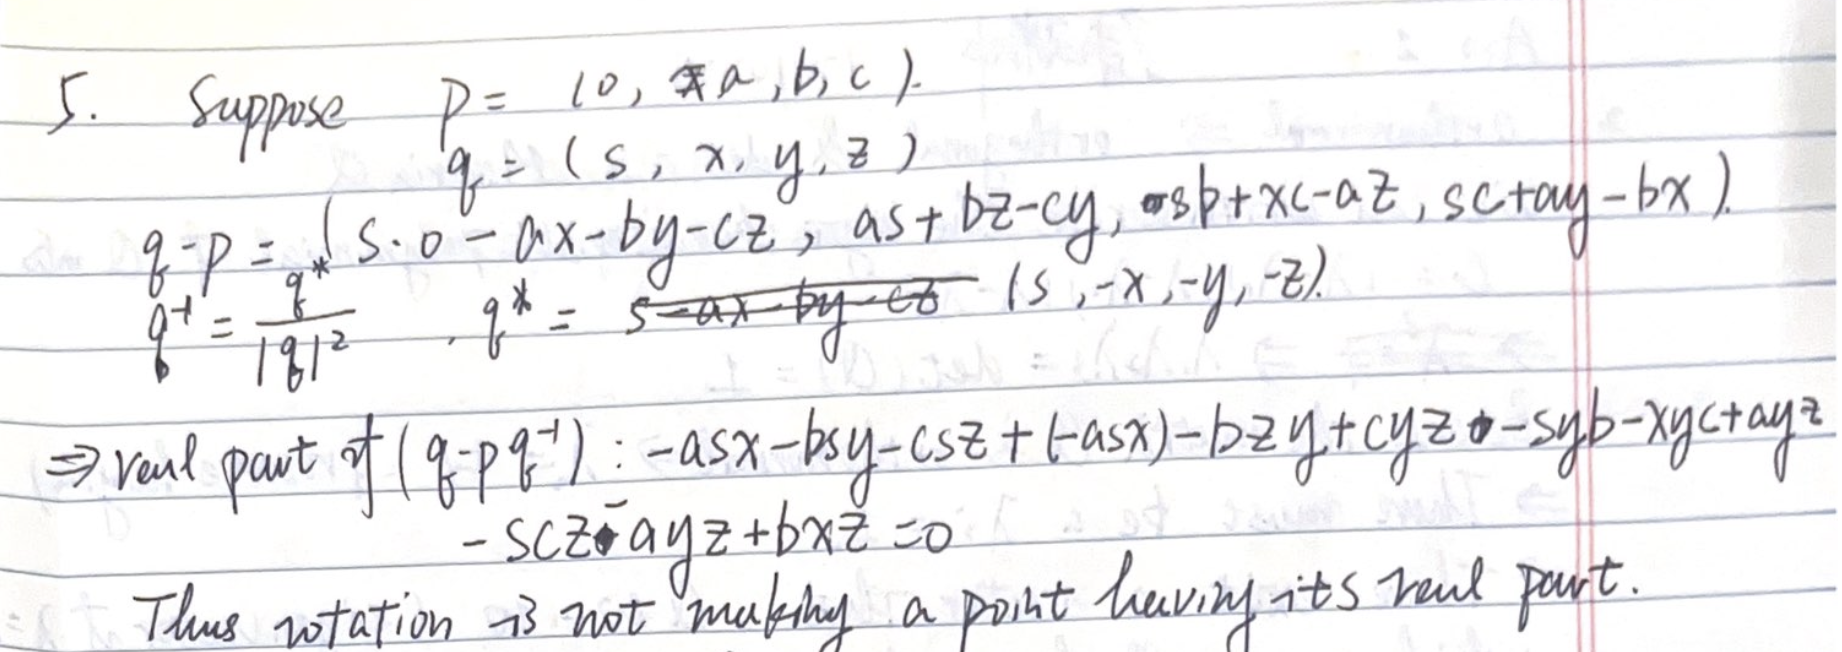 5. Suppose p = (0, a, b, c).
q = (s, x, y, z)
q·p = (s·0 - ax - by - cz, as + bz - cy, sb + xc - az, sc + ay - bx).
q⁻¹ = q* / |q|² , q* = s - ax - by - cz (s, -x, -y, -z).
⇒ real part of (q·pq⁻¹) : -asx - bsy - csz + (-asx) - bzy + cyz - syb - xyc + ayz
- scz - ayz + bxz = 0
Thus rotation is not making a point having its real part.